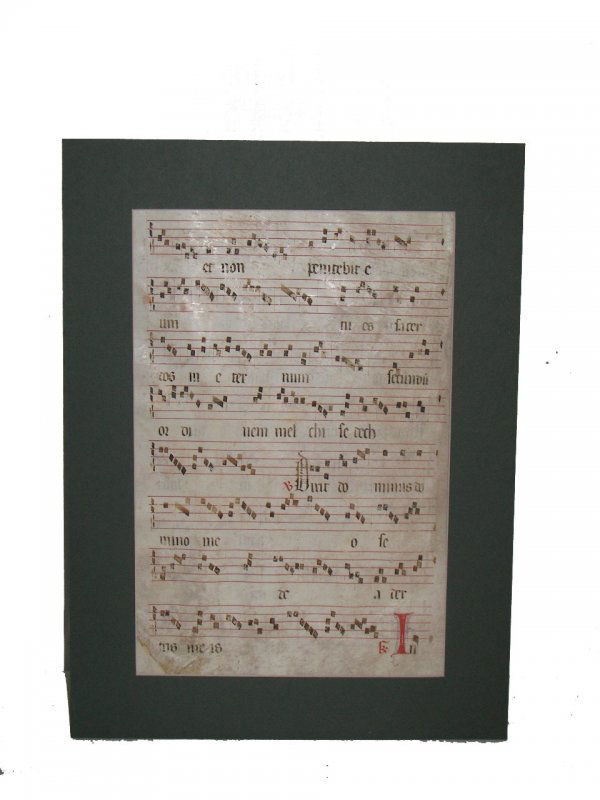 et non penitebit e
um tu es sacer
dos in e ter num secundū
or di nem mel chi se dech
℣ Dixit do minus do
mino me o se
de a dex
tris me is ℟ In